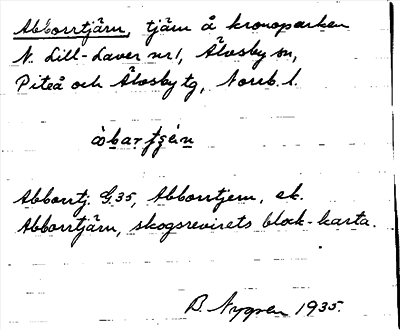 Abborrtjärn, tjärn å kronoparken
N. Lill-Laver nr 1, Älvsby sn,
Piteå och Älvsby tg, Norrb. l.
Abborrtj. G.35, Abborrtjern, ek.
Abborrtjärn, skogsrevirets block-karta.
B. Nygren 1935.